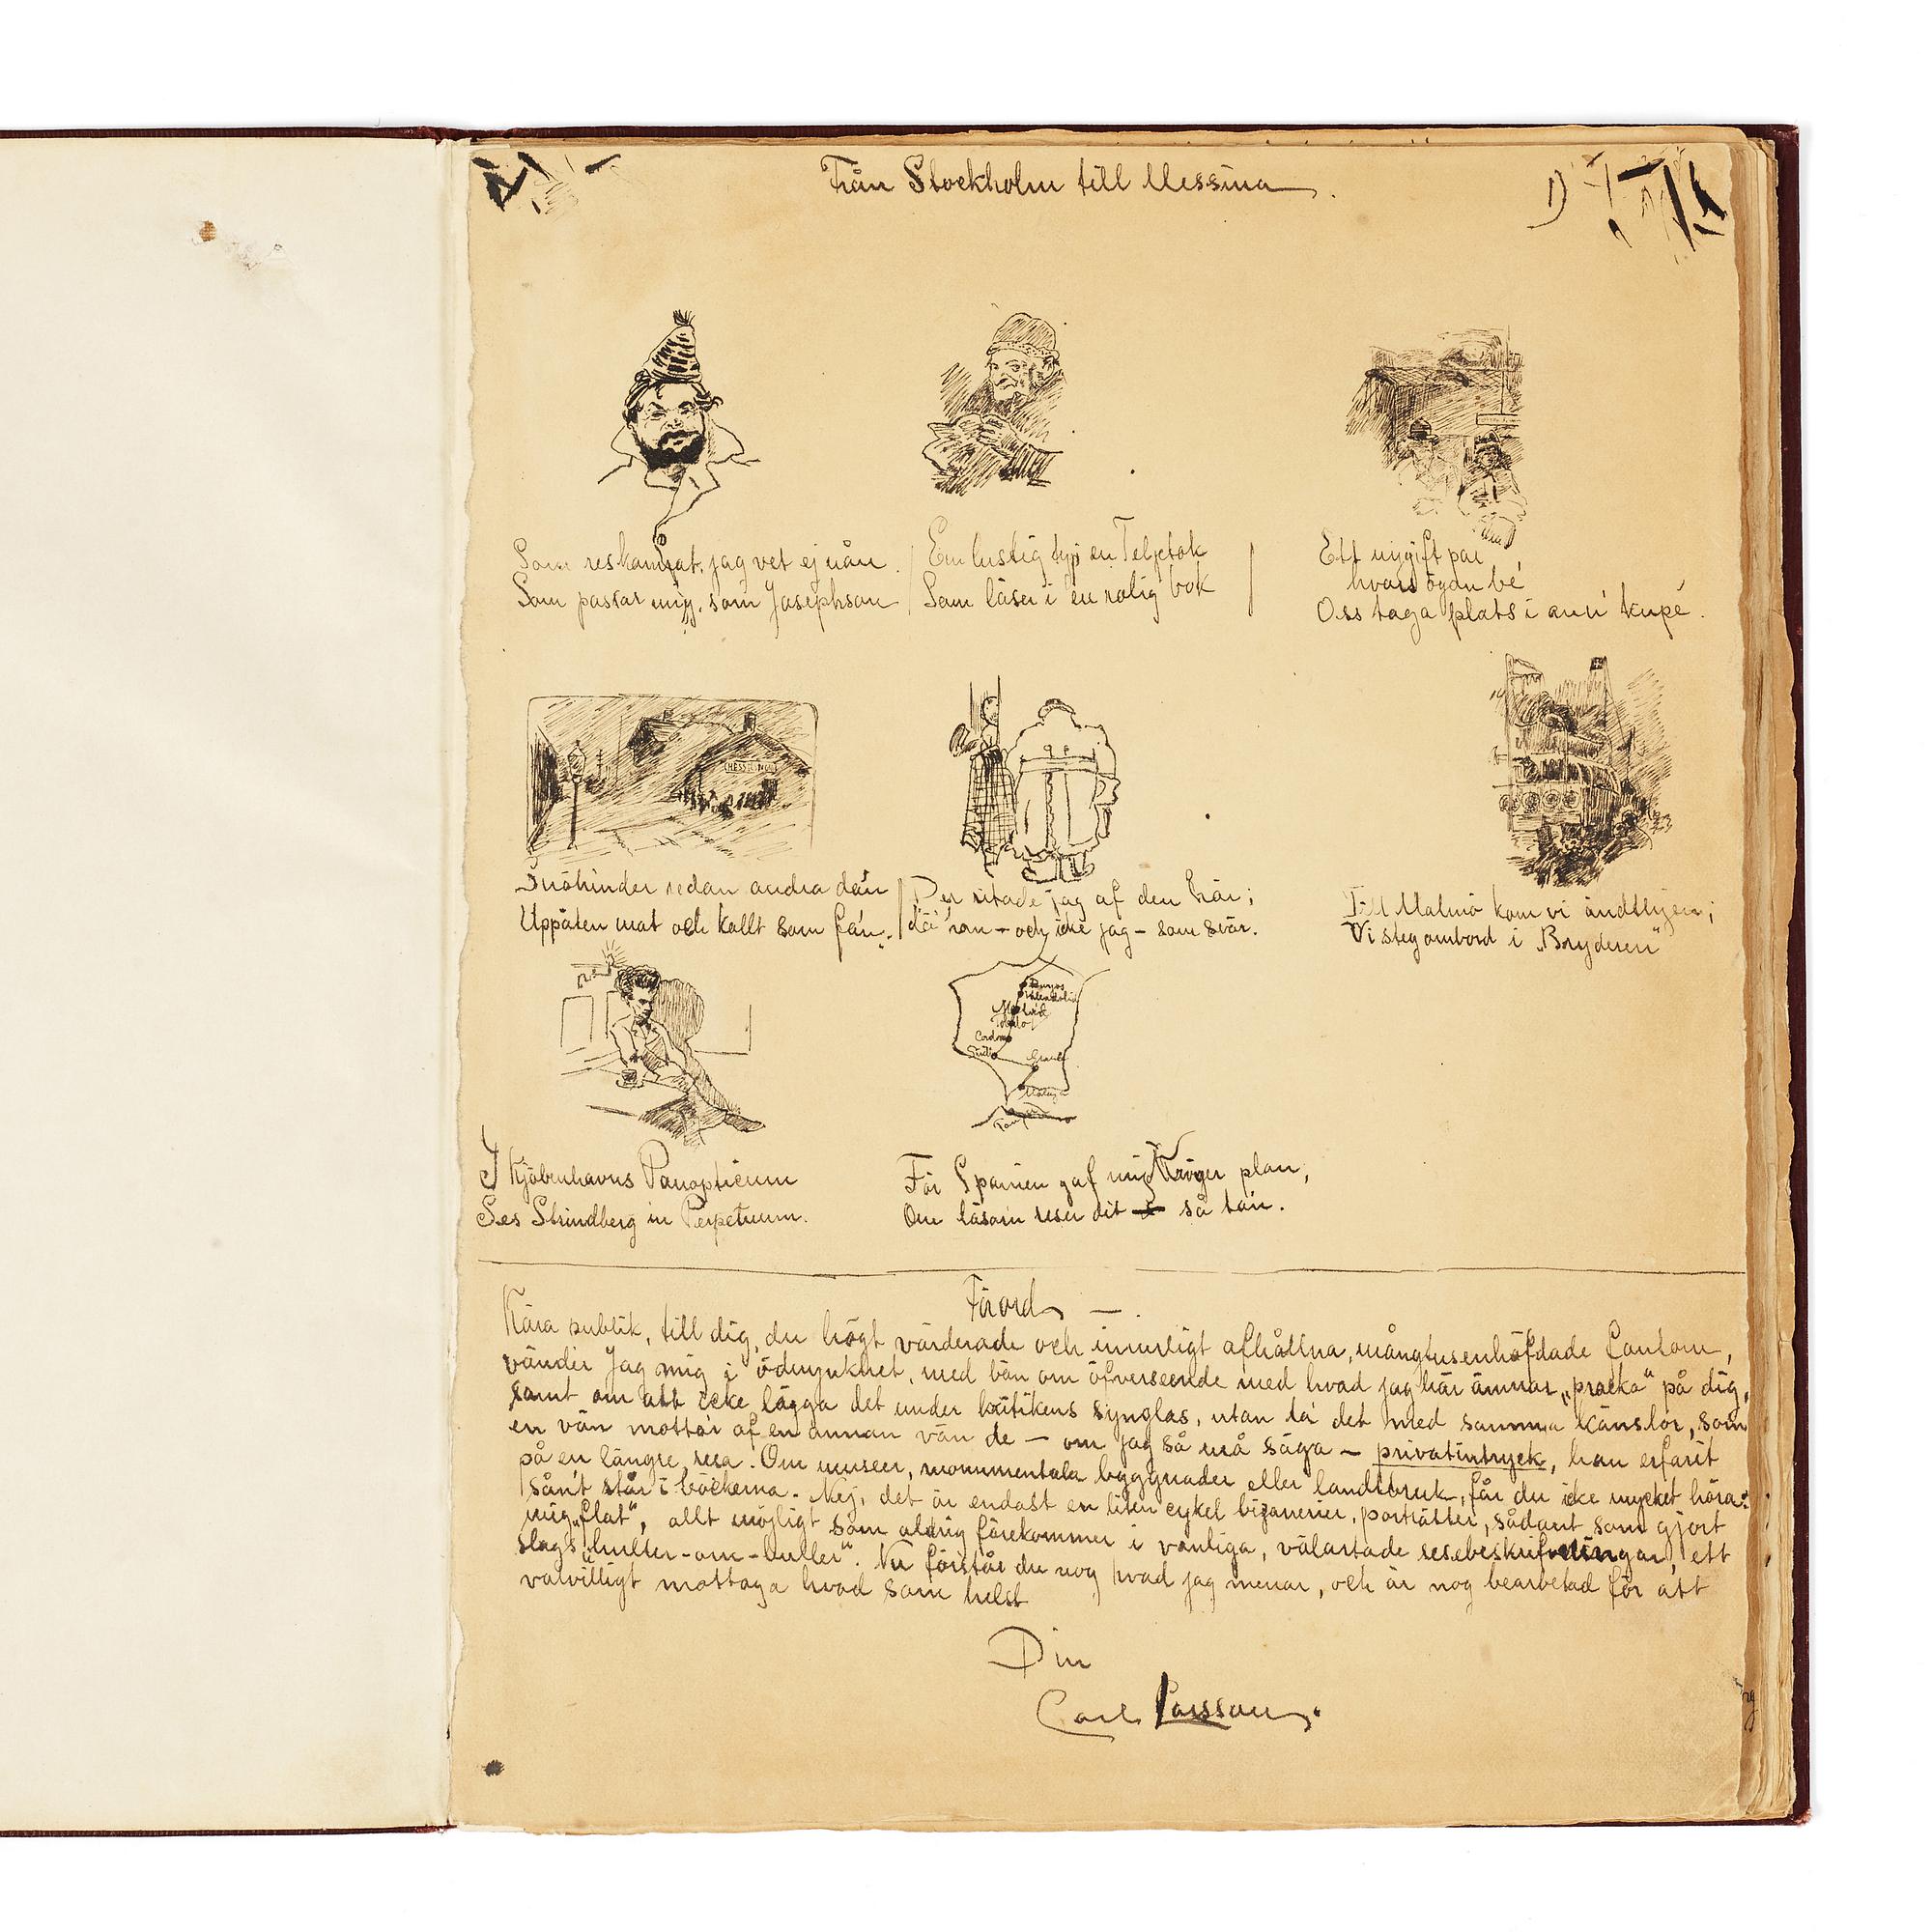 Från Stockholm till Messina.
Som reskamrat, jag vet ej nån
Som passar mig, som Josephson
En lustig typ en Teljetok
Som läser i en rolig bok
Ett nygift par
hvars ögon bé
Oss taga plats i ann' kupé.
HESSLEHOLM
Snöhinder redan andra dán
Uppäten mat och kallt som fán.
Per ritade jag af den här;
dä' han - och icke jag - som svär.
Till Malmö kom vi ändtligen;
Vi steg ombord i „Bryderen"
Burgos
Valladolid
Madrid
Toledo
Cordova
Sevilla
Granada
Malaga
I Kjöbenhavns Panopticum
Ses Strindberg in Perpetuum.
För Spanien gaf mig Kröyer plan,
Om läsarn reser dit så ta'n.
Förord.
Kära publik, till dig, du högt värderade och innerligt afhållna, mångtusenhöfdade fantom,
vänder jag mig i ödmjukhet, med bön om öfverseende med hvad jag här ämnar „pracka" på dig,
samt om att icke lägga det under kritikens synglas, utan ta' det med samma känslor, som
en vän mottar af en annan vän de - om jag så må säga - privatintryck, han erfarit
på en längre resa. Om museer, monumentala byggnader eller landtbruk, får du icke mycket höra:
sån't står i böckerna. Nej, det är endast en liten cykel bizarrerier, porträtter, sådant som gjort
mig „flat", allt möjligt som aldrig förekommer i vanliga, välartade resebeskrifvningar, ett
slags „huller-om-buller". Nu förstår du nog hvad jag menar, och är nog bearbetad för att
välvilligt mottaga hvad som helst
Din
Carl Larsson.